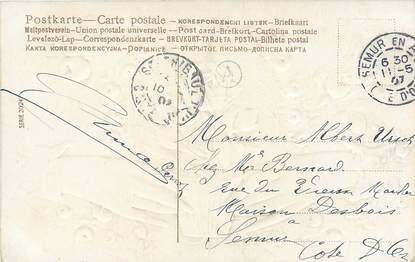 Postkarte - Carte postale - KORESPONDENČNI LISTEK - Brefkaart
Weltpostverein - Union postale universelle - Post card - Brefkort - Cartolina postale
Levelező-Lap - Correspondenzkarte - BREVKORT - TARJETA POSTAL - Bilhete postal
KARTA KORESPONDENCYJNA - DOPISNICE - ОТКРЫТОЕ ПИСЬМО - ДОПИСНА КАРТА
SEMUR EN
6 30
11-5
07
D'OR
10
07
A
SERIE
Monsieur Albert
chez Mr Bernard
Rue du Vieux Marché
Maison Desbois
à
Semur
Côte D'Or